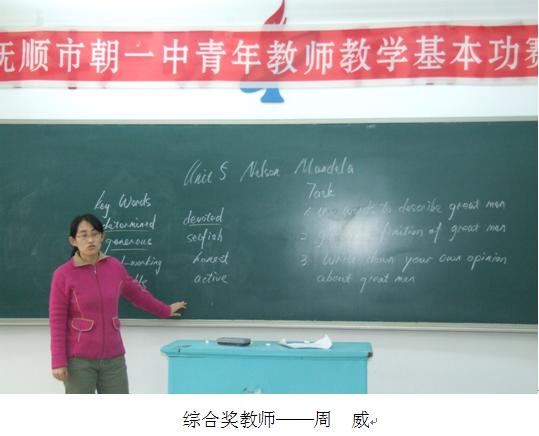 抚顺市朝一中青年教师教学基本功赛
Unit 5 Nelson Mandela
Key Words
Task
determined
devoted
1. Use words to describe great man
generous
selfish
2. definition of great man
working
honest
3. Write down your own opinion
active
about great man
综合奖教师——周 威